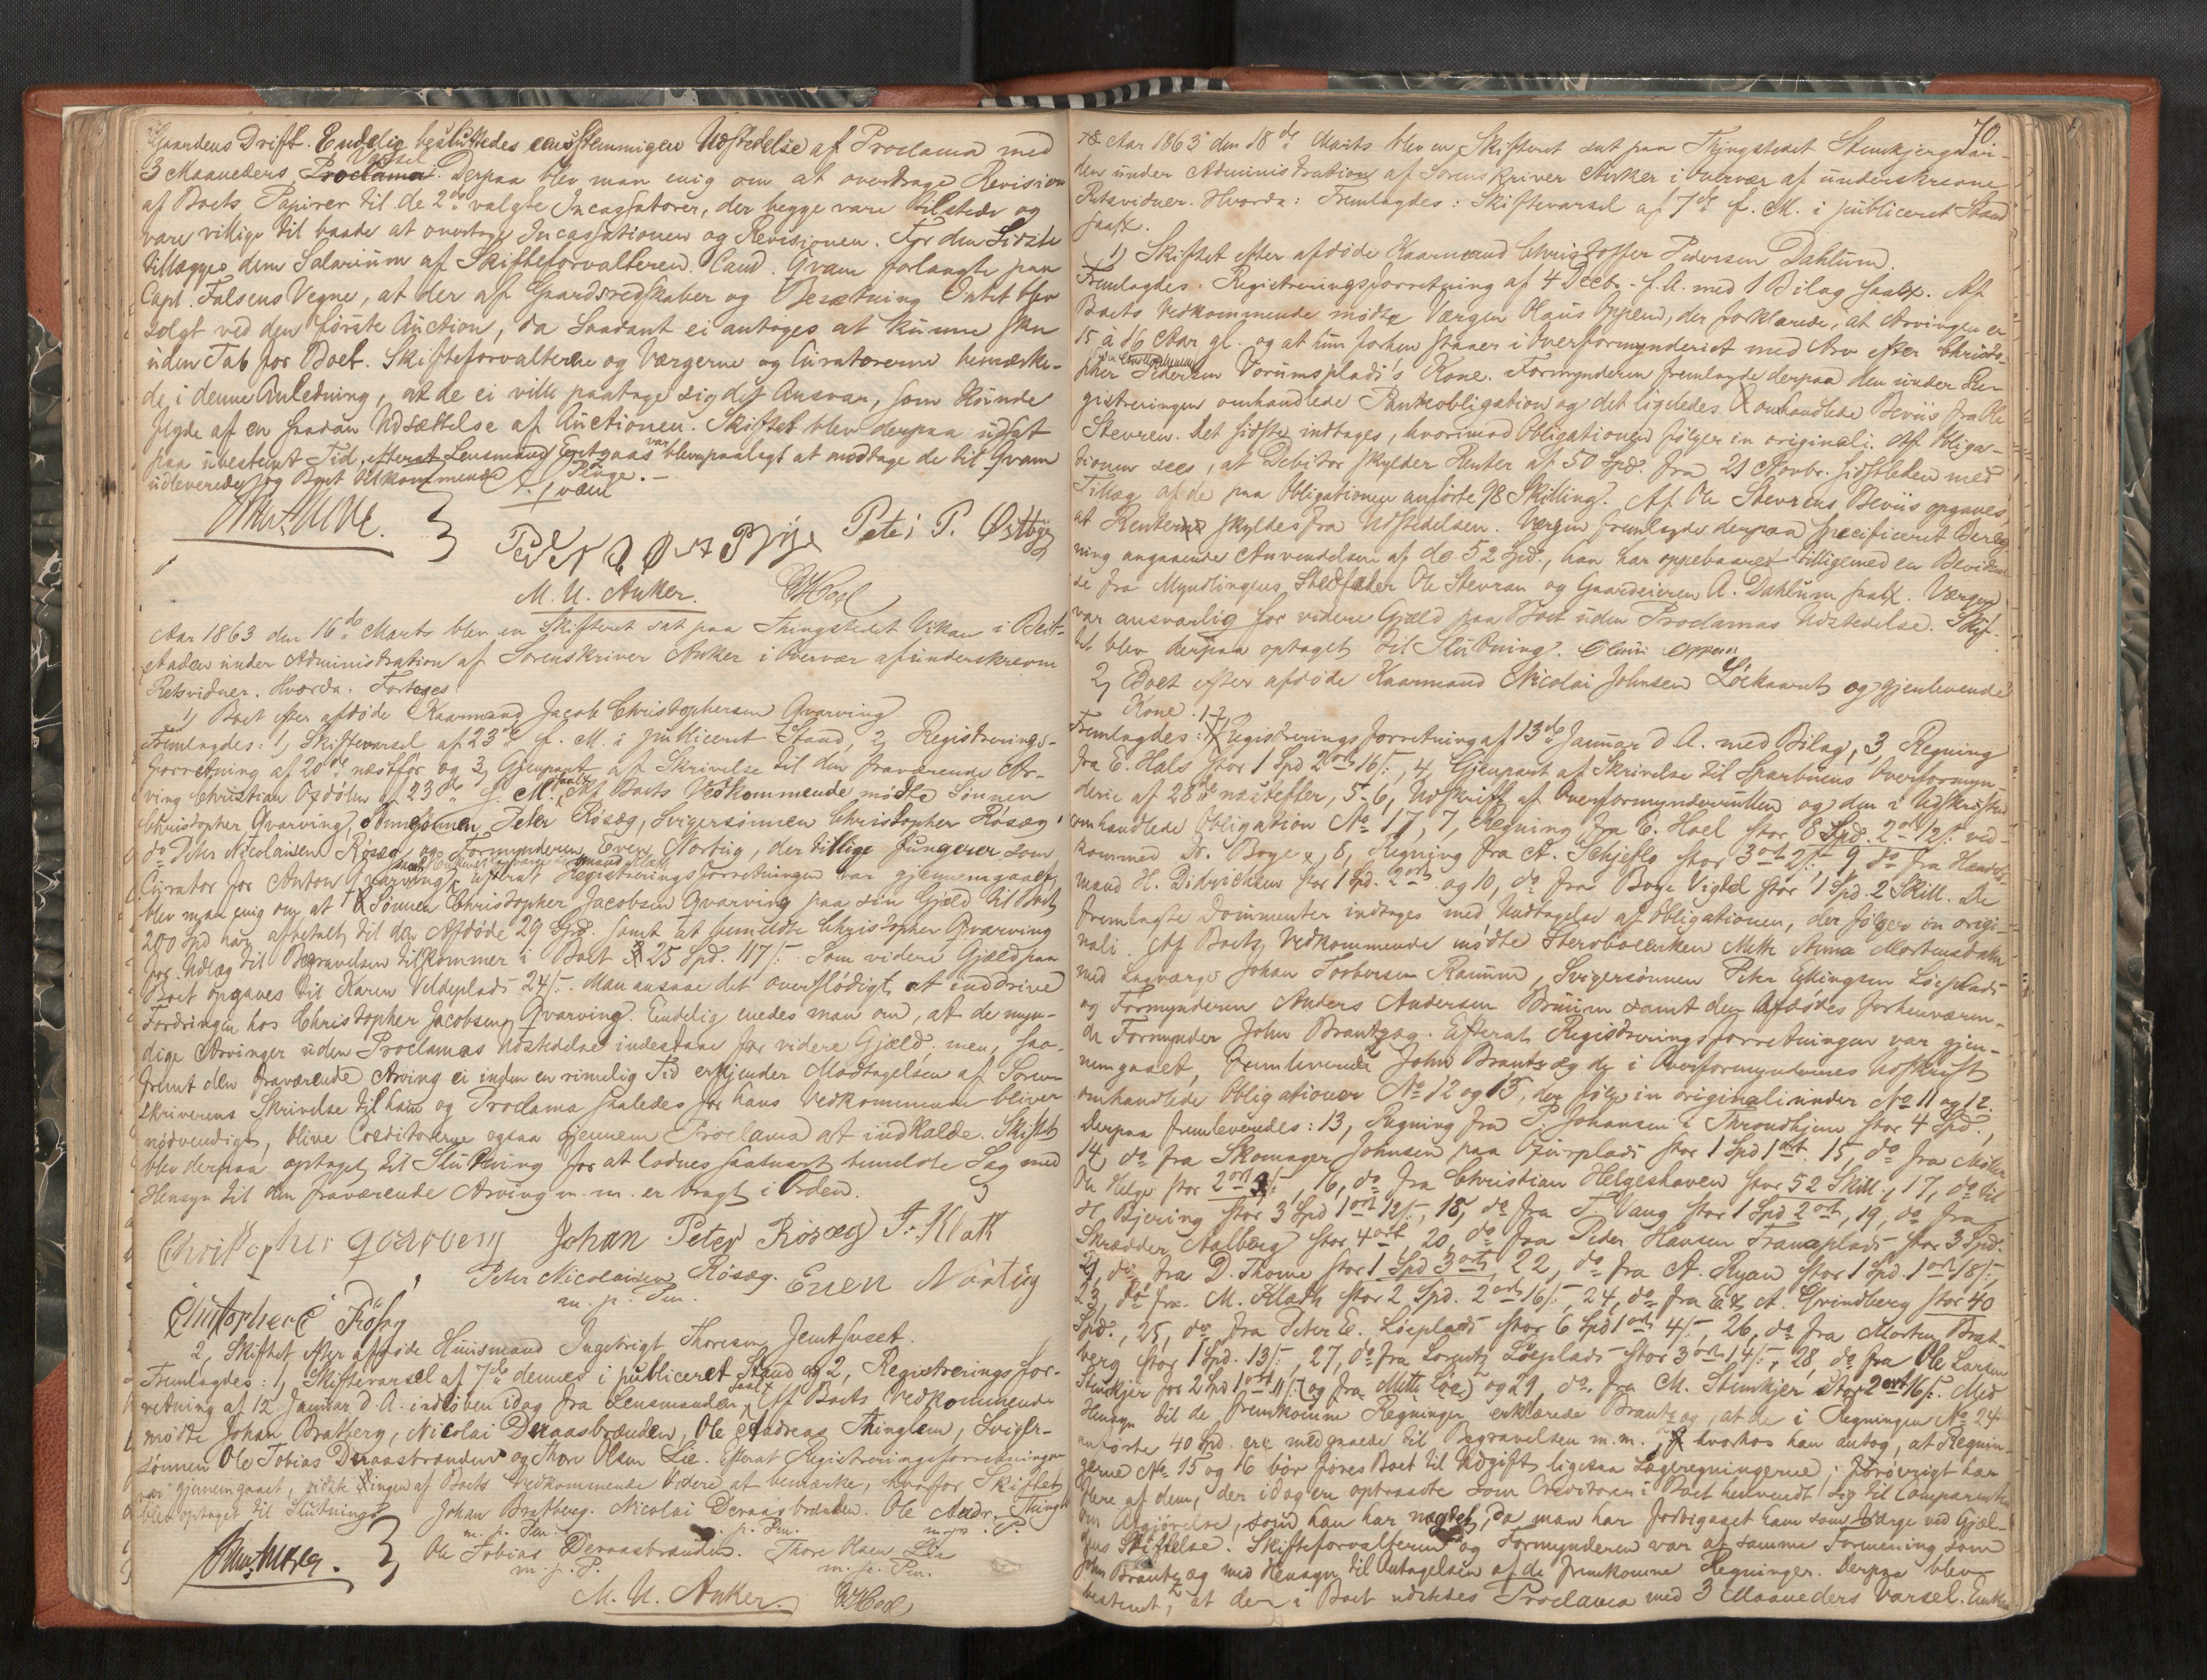 Gaardens Drift. Endelig besluttedes eenstemmigen Udstedelse af Proclama med
3 Maaneders Proclama Varsel. Derpaa blev man enig om at overdrage Revision
af Boets Papirer til de 2de valgte Incassatorer, der begge vare tilstede og
vare villige til baade at overtage Incassationen og Revisionen. For den Sidste
tillægges dem Salarium af Skifteforvalteren. Cand. Qvam forlangte paa
Capt. Falsens Vegne, at der af Gaardsredskaber og Besætning Intet blev
solgt ved den første Auction, da Saadant ei antages at kunne ske
uden Tab for Boet. Skifteforvalteren og Værgerne og Curatorerne bemærke-
de i denne Anledning, at de ei ville paatage sig det Ansvar, som kunde
flyde af en saadan Udsættelse af Auctionen. Skiftet blev derpaa udsat
paa ubestemt Tid, efterat Lensmand var blevn paalagt at modtage de til Qvam
udleverede og Boet vedkommende Penge.
Qvam
Peder Øst Peter P. Østbye
M. U. Anker. Hoel
Aar 1863 den 16de Marts blev en Skifteret sat paa Thingstedet Vikan i Beit-
staden under Administration af Sorenskriver Anker i Overvær af underskrevne
Retsvidner. Hvorda: Foretages:
1, Boet efter afdøde Kaarmand Jacob Christophersen Qvarving.
Fremlagdes: 1, Skiftevarsel af 23de f. M. i publiceret Stand, 2, Registrerings-
forretning af 20de næstfør og 3, Gjenpart af Skrivelse til den fraværende Ar-
ving Christian af 23de f. M. saalt. Af Boets Vedkommende mødte Sønnen
Christopher Qvarving, Sønnesønnen Peter Røsæg, Svigersønnen Christopher Røsæg,
do Peter Nicolaisen Røsæg og Formynderen Even Nortug, der tillige fungerer som
Curator for Anton Qvarving, efterat Registreringsforretningen var gjennemgaaet,
blev man enig om, at Sønnen Christopher Jacobsen Qvarving paa sin Gjæld til Boet
200 Spd har afbetalt til den Afdøde 29 Spd. samt at bemeldte Christopher Qvarving
for Udlæg til Begravelsen tilkommer i Boet 25 Spd. 117 s. Som videre Gjæld paa
Boet opgaves til Karen Veldeplads 24 s. Man ansaae det overflødigt at inddrive
Fordringen hos Christopher Jacobsen Qvarving. Endelig enedes man om, at de myn-
dige Arvinger uden Proclamas Udstedelse indestaae for videre Gjæld, men, saa-
fremt den fraværende Arving ei inden en rimelig Tid erkjender Modtagelsen af Soren-
skriverens Skrivelse til ham og Proclama saaledes for hans Vedkommende bliver
nødvendigt, blive Creditorerne ogsaa gjennem Proclama at indkalde. Skiftet
blev derpaa optaget til Slutning for at lodnes saasnart bemeldte Sag med
Hensyn til den fraværende Arving m. m. er bragt i Orden.
Christopher Qvarveng Johan Peter Røsæg T. Klæth
Peter Nicolaisen Røsæg. Even Nortug
m. p. Pen.
Christopher Røsæg
2, Skiftet efter afdøde Huusmand Ingebrigt Thoresen Jemthuset.
Fremlagdes: 1, Skiftevarsel af 7de dennes i publiceret Stand og 2, Registreringsfor-
retning af 12 Januar d. A. indløben idag fra Lensmanden, saalt. Af Boets Vedkommende
mødte Johan Bratberg, Nicolai Deraasbranden, Ole Andreas Thinglem, Sviger-
sønnen Ole Tobias Deraasbranden og Thore Olsen Lie. Efterat Registreringsforretningen
var gjennemgaaet, vidste ingen af Boets Vedkommende Videre at bemærke, hvorfor Skiftet
blev optaget til Slutning. Johan Bratberg. Nicolai Deraasbranden. Ole Andr. Thingl
m. p. Pen. m. p. Pen. m. p. P.
Ole Tobias Deraasbranden. Thore Olsen Lie
m. p. P. m. p. Pen.
M. U. Anker. Hoel
70
Aar 1863 den 18de Marts blev en Skifteret sat paa Thingstedet Stenkjergaar-
den under Administration af Sorenskriver Anker i Overvær af underskrevne
Retsvidner. Hvorda: Fremlagdes: Skiftevarsel af 7de f. M. i publiceret Stand
saalt.
1, Skiftet efter afdøde Kaarmand Christopher Pedersen Dahlum.
Fremlagdes: Registreringsforretning af 4 Decbr. f. A. med 1 Bilag saalt. Af
Boets Vedkommende mødte Værgen Oluus Oppem, der forklarede, at Arvingen er
15 à 16 Aar gl. og at hun forhen staaer i Overformynderiet med Arv efter Christo-
pher Pedersen Vorumsplads's Kone. Formynderen fremlagde derpaa den under Re-
gistreringen omhandlede Panteobligation og det ligeledes omhandlede Beviis fra Ole
Stevren. Det sidste indtages, hvorimod Obligationen følger in originali. Af Obliga-
tionen sees, at Debitor skylder Renter af 50 Spd. fra 21 Novbr. sidstleden med
Tillæg af de paa Obligationen anførte 98 Skilling. Af Ole Stevrens Beviis opgaves,
at Renterne skyldes fra Udstedelsen. Værgen fremlagde derpaa specificeret Bereg-
ning angaaende Anvendelsen af de 52 Spd., han har oppebaaret tilligemed en Bevidnel-
se fra Myndlingens Stedfader Ole Stevran og Gaardeieren A. Dahlum saalt. Værgen
var ansvarlig for videre Gjæld paa Boet uden Proclamas Udstedelse. Skif-
tet blev derpaa optaget til Slutning. Oluus Oppem
2, Boet efter afdøde Kaarmand Nicolai Johnsen Løekaaret og gjenlevende
Kone.
Fremlagdes: 1-2, Registreringsforretning af 13de Januar d. A. med Bilag, 3, Regning
fra E. Hals stor 1 Spd 2 ort 16 s., 4, Gjenpart af Skrivelse til Sparbuens Overformyn-
derie af 28de næstefter, 5-6, Udskrift af Overformynderrullen og den i Udskriften
omhandlede Obligation No 17, 7, Regning fra E. Hoel stor 8 Spd. 2 ort 12 s. ved-
kommed Dr. Boye, 8, Regning fra A. Schjeflo stor 3 ort 2 s. 9 do fra Handels-
mand H. Didrichsen stor 1 Spd. 2 ort og 10, do fra Boye Vigtel stor 1 Spd. 2 Skill. De
fremlagte Documenter indtages med Undtagelse af Obligationen, der følger in origi-
nali. Af Boets Vedkommende mødte Stervboeenken Mette Anna Mortensdatter
med Laugværge Johan Torbersen Ramnen, Svigersønnen Peter Ellingsen Løeplads
og Formynderen Anders Andersen Bruum samt den Afdødes forhenværen-
de Formynder John Brantzæg. Efterat Registreringsforretningen var gjen-
nemgaaet, fremleverede John Brantzæg de i Overformynderiets Udskrift
omhandlede Obligationer No 12 og 15, der følge in originali under No 11 og 12.
Derpaa fremleveredes: 13, Regning fra P. Johansen i Throndhjem stor 4 Spd.,
14, do fra Skomager Johnsen paa Fuurplads stor 1 Spd 1 ort 15, do fra Møller
Ole Helge stor 2 ort, 16, do fra Christian Helgeshaven stor 52 Skill., 17, do til
H. Bjering stor 3 Spd 1 ort 12 s., 18, do fra T. Vang stor 1 Spd 2 ort, 19, do fra
Skrædder Aalberg stor 4 ort, 20, do fra Peder Hansen Tranaplads stor 3 Spd.
21, do fra D. Thorne stor 1 Spd 3 ort, 22, do fra A. Ryan stor 1 Spd. 1 ort 18 s.,
23, do fra M. Klæth stor 2 Spd. 2 ort 16 s., 24, do fra E. & A. Grindberg stor 40
Spd., 25, do fra Peter E. Løeplads stor 6 Spd 1 ort 4 s., 26, do fra Morten Brat-
berg stor 1 Spd. 13 s., 27, do fra Lorentz Løeplads stor 3 ort 14 s., 28, do fra Ole Larsen
Stenkjer for 2 Spd 1 ort 11 s. (og fra Mette Løe) og 29, do fra M. Stenkjer stor 2 ort 16 s. Med
Hensyn til de fremkomne Regninger erklærede Brantzæg, at de i Regningen No 24
anførte 40 Spd. ere medgaaede til Begravelsen m. m., hvorhos han antog, at Regnin-
gerne No 15 og 16 bør føres Boet til Udgift ligesaa Lægeregningerne; forøvrigt har
flere af dem, der idag ere optraadte som Creditorer i Boet henvendt sig til Comparenten
om Afgjørelse, som han har nægtet, da man har forbigaaet ham som Værge ved Gjæl-
dens Stiftelse. Skifteforvalteren og Formynderen var af samme Formening som
John Brantzæg med Hensyn til Antagelsen af de fremkomne Regninger. Derpaa blev
bestemt, at der i Boet udstedes Proclama med 3 Maaneders Varsel. Enken